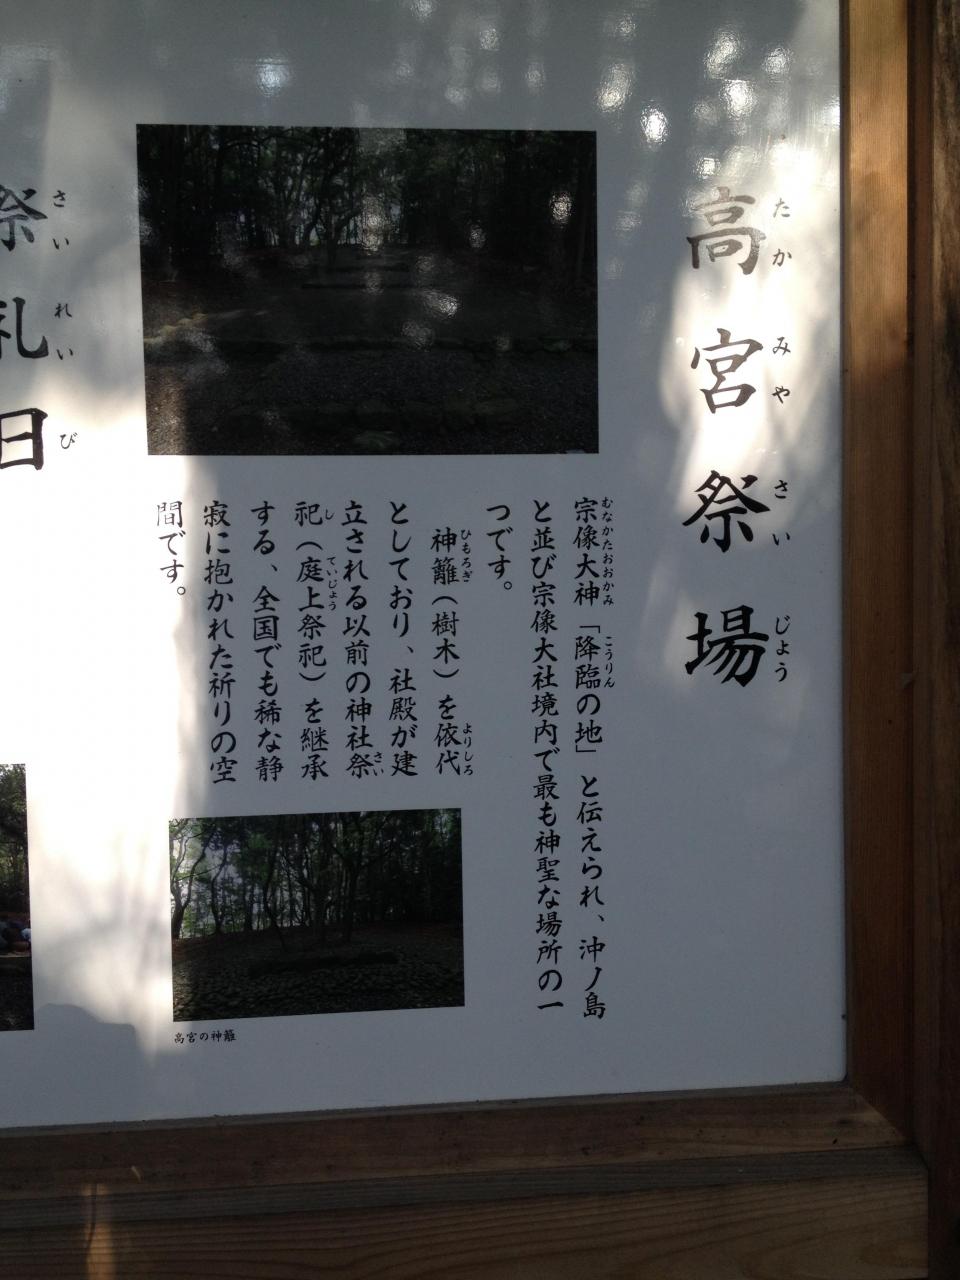 高宮祭場
たかみやさいじょう
宗像大神「降臨の地」と伝えられ、沖ノ島
むなかたおおかみ
こうりん
と並び宗像大社境内で最も神聖な場所の一
つです。
神籬（樹木）を依代
ひもろぎ
よりしろ
としており、社殿が建
立される以前の神社祭
さい
祀（庭上祭祀）を継承
し
ていじょう
する、全国でも稀な静
寂に抱かれた祈りの空
間です。
高宮の神籬
祭礼日
さいれいび